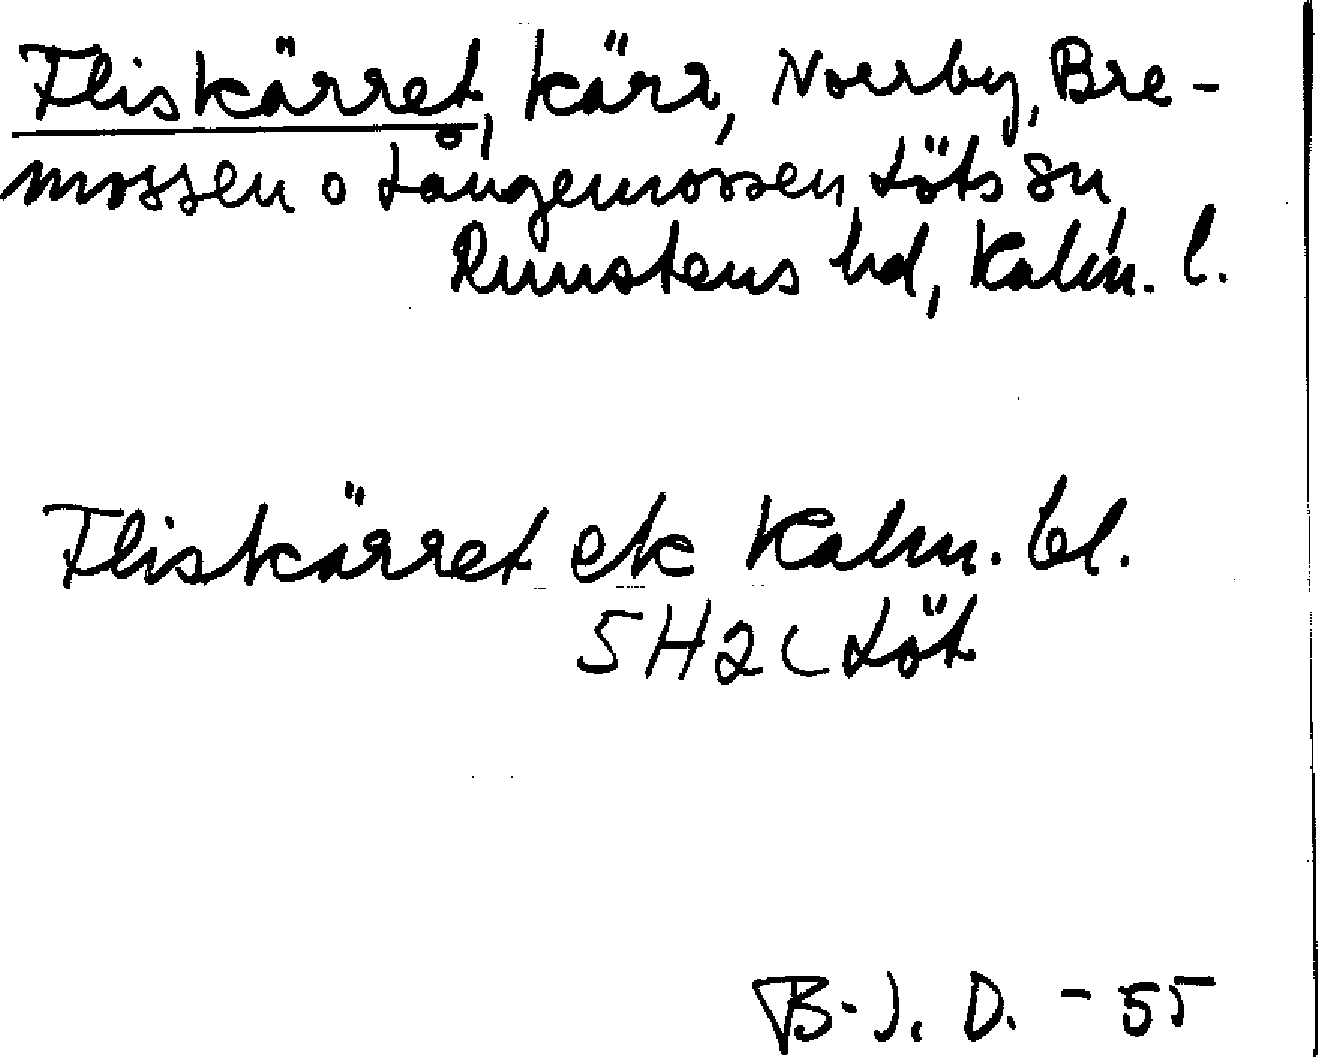 Fliskärret, kärr, Norrby, Bre-
mossen o Långemossen, Löts sn,
Runstens hd, Kalm. l.
Fliskärret ek Kalm. bl.
5H2c Löt
B.J. D. - 55